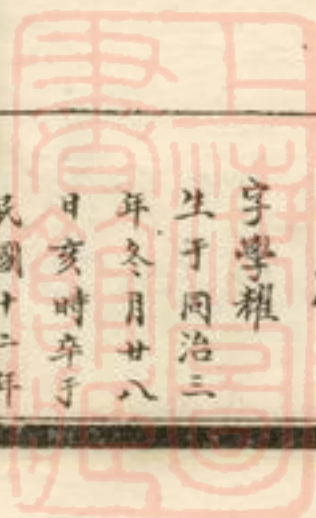 字學耀
生于同治三
年冬月廿八
日亥時卒于
民國十二年